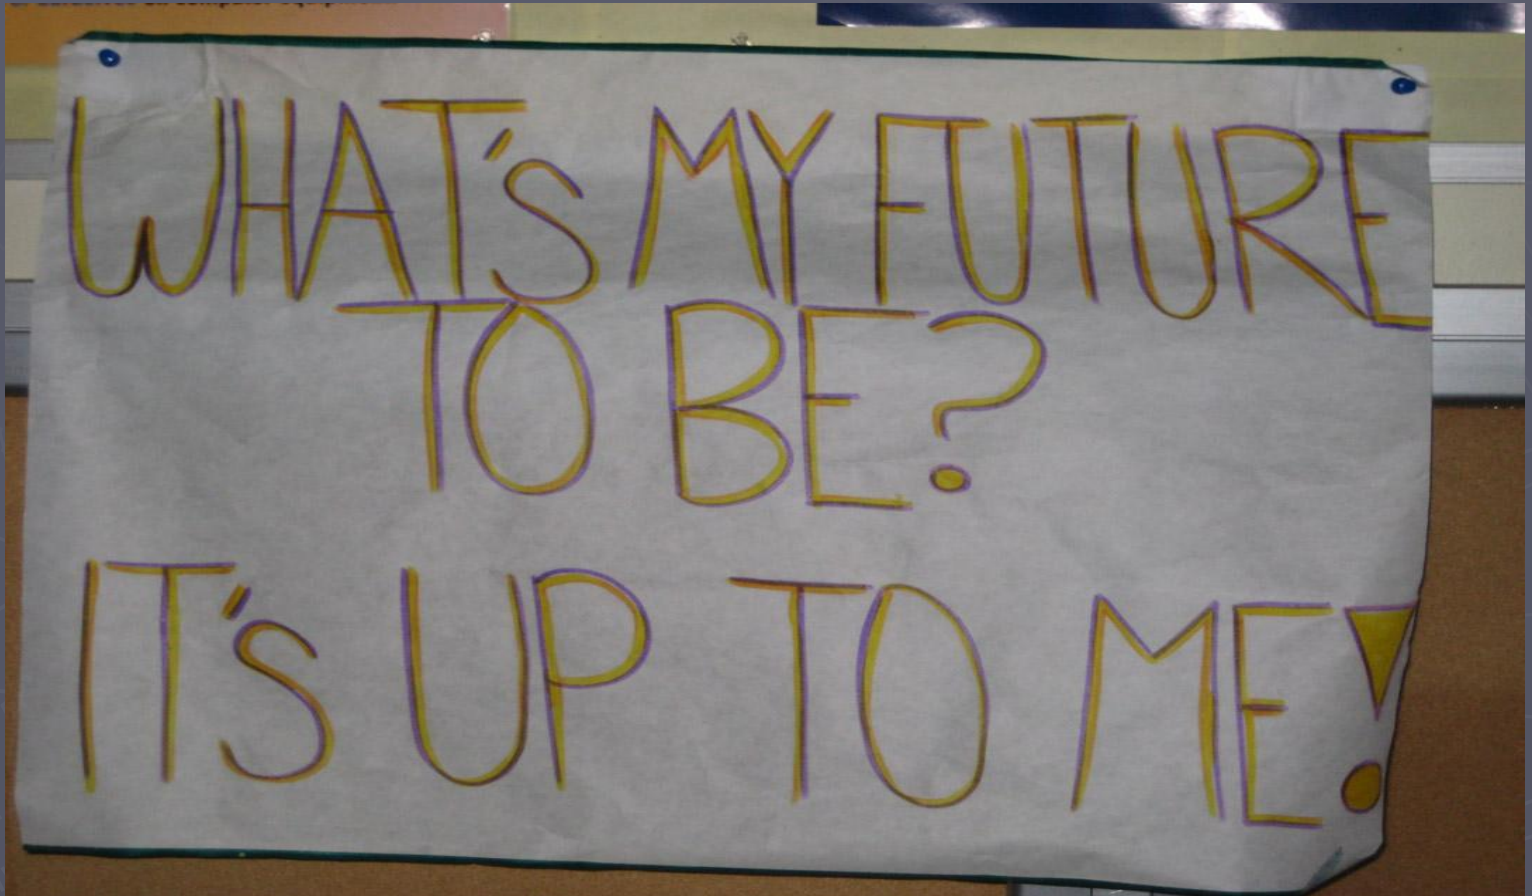 WHAT's MY FUTURE
TO BE?
IT's UP TO ME!